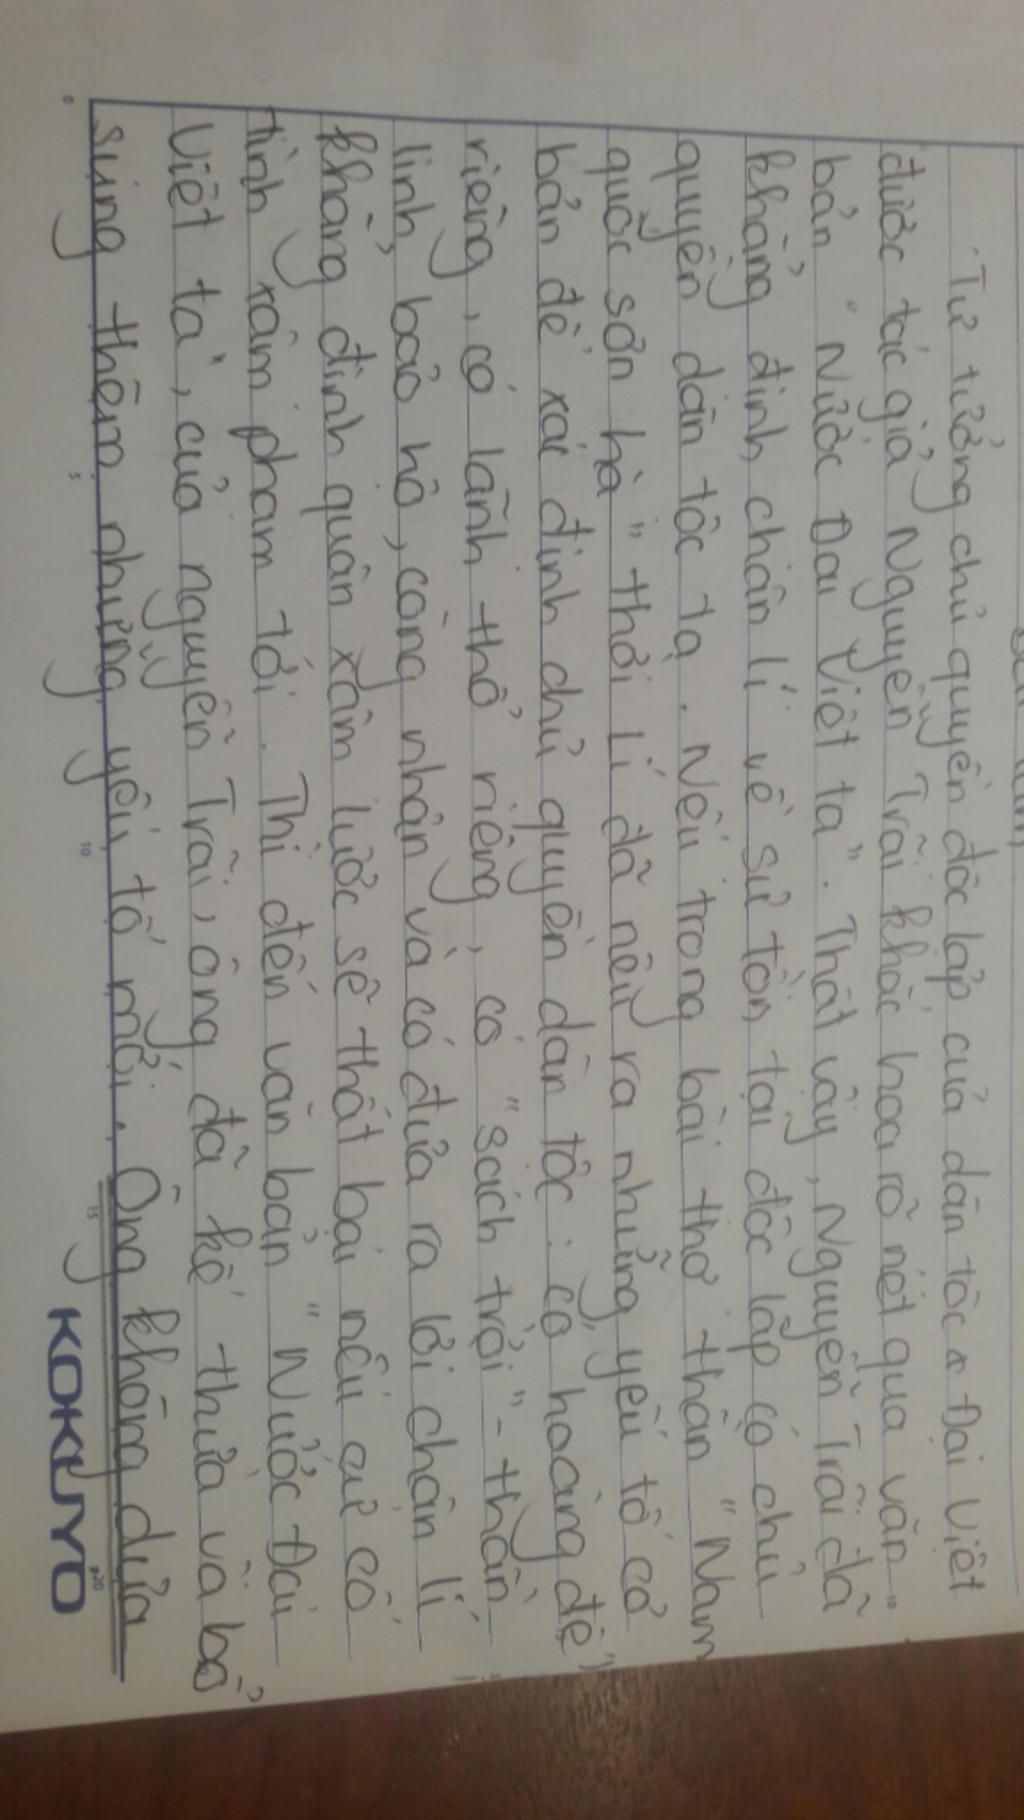 Tư tưởng chủ quyền độc lập của dân tộc Đại Việt
được tác giả Nguyễn Trãi khắc hoạ rõ nét qua văn
bản "Nước Đại Việt ta". Thật vậy, Nguyễn Trãi đã
khẳng định chân lí về sự tồn tại độc lập có chủ
quyền dân tộc ta. Nếu trong bài thơ thần "Nam
quốc sơn hà" thời Lí đã nêu ra những yếu tố cơ
bản để xác định chủ quyền dân tộc: có hoàng đế
riêng, có lãnh thổ riêng, có "sách trời" - thần
linh bảo hộ, công nhận và có đưa ra lời chân lí
khẳng định quân xâm lược sẽ thất bại nếu cứ cố
tình xâm phạm tới. Thì đến văn bản "Nước Đại
Việt ta", của nguyễn Trãi, ông đã kế thừa và bổ
sung thêm những yếu tố mới. Ông không dựa
0 5 10 15 20
KOKUYO